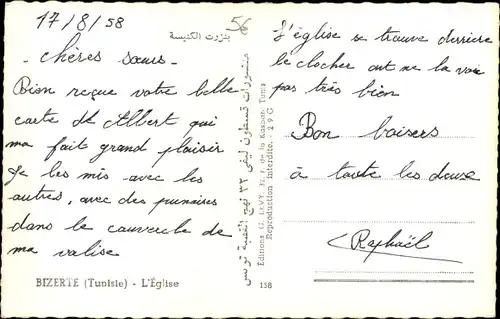 17/8/58
56
chères sœurs -
Bien reçue votre belle
carte de Albert qui
ma fait grand plaisir
Je les mis avec les
autres, avec des punaises
dans le couvercle de
ma valise
BIZERTE (Tunisie) - L'Église
بنزرت الكنيسة
منشورات قسطون ليفي ٣٣ نهج القصبة تونس
Editions G. LEVY, R. de la Kasbah, Tunis
Reproduction Interdite. - 29G
158
L'église se trouve derriere
le clocher ont ne la voie
pas très bien
Bon baisers
à toute les deux
Raphaël